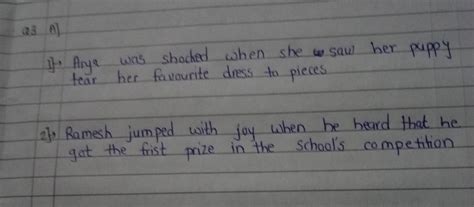 Q3 A]
1]→ Arya was shocked when she saw her puppy
tear her favourite dress to pieces
2]→ Ramesh jumped with joy when he heard that he
got the frist prize in the school's competition